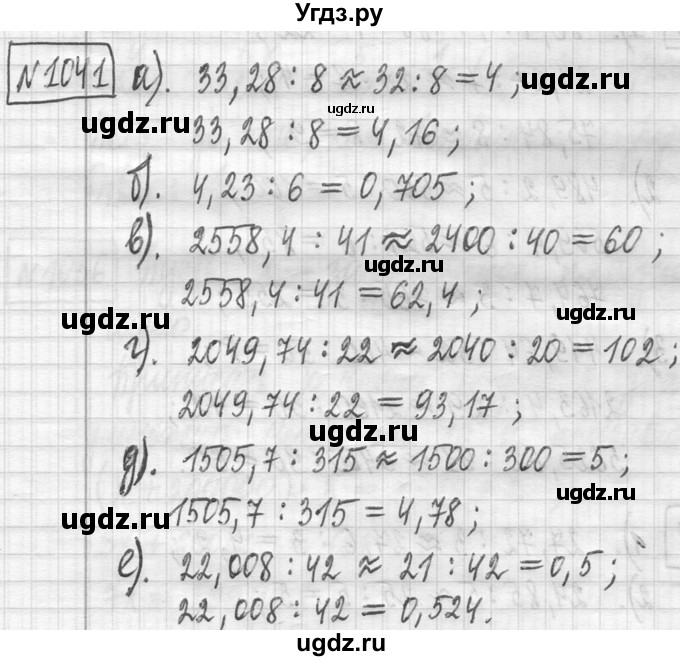 Угдз.ру
№1041 а). 33,28 : 8 ≈ 32 : 8 = 4 ;
ugdz.ru
ugdz.ru
ugdz.ru
33,28 : 8 = 4,16 ;
б). 4,23 : 6 = 0,705 ;
в). 2558,4 : 41 ≈ 2400 : 40 = 60 ;
ugdz.ru
2558,4 : 41 = 62,4 ;
ugdz.ru
ugdz.ru
г). 2049,74 : 22 ≈ 2040 : 20 = 102 ;
2049,74 : 22 = 93,17 ;
ugdz.ru
д). 1505,7 : 315 ≈ 1500 : 300 = 5 ;
1505,7 : 315 = 4,78 ;
ugdz.ru
ugdz.ru
е). 22,008 : 42 ≈ 21 : 42 = 0,5 ;
22,008 : 42 = 0,524.
ugdz.ru